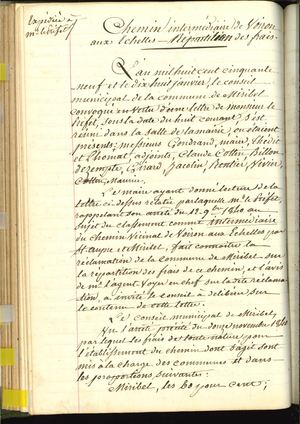 Expédiée à
Mr le Préfet
Chemin intermédiaire de Voiron
aux Echelles — Répartition des frais.
L'an mil huit cent cinquante
neuf et le dix huit janvier, le conseil
municipal de la commune de Miribel
convoqué en vertu d'une lettre de monsieur le
Préfet, sous la date du huit courant, s'est
réuni dans la salle de la mairie, où étaient
présents; messieurs Gondrand, maire,
et adjoints, Claude Cottin, Billon
Girard, Jacolin,
Cottin,
Le maire ayant donné lecture de la
lettre ci-dessus relatée par laquelle mr le Préfet
rappelant son arrêté du 12 9bre
sujet du classement comme intermédiaire
du chemin vicinal de Voiron aux Echelles par
St et Miribel, fait connaître la
réclamation de la commune de Miribel sur
la répartition des frais de ce chemin; et l'avis
de mr l'agent Voyer en chef sur la dite réclama-
tion, a invité le conseil à délibérer sur
le contenu de cette lettre.
Le conseil municipal de Miribel,
Vu l'arrêté précité du douze novembre
par lequel les frais de toute nature pour
l'établissement du chemin dont s'agit sont
mis à la charge des communes et dans
les proportions suivantes:
Miribel, les 60 pour cent;